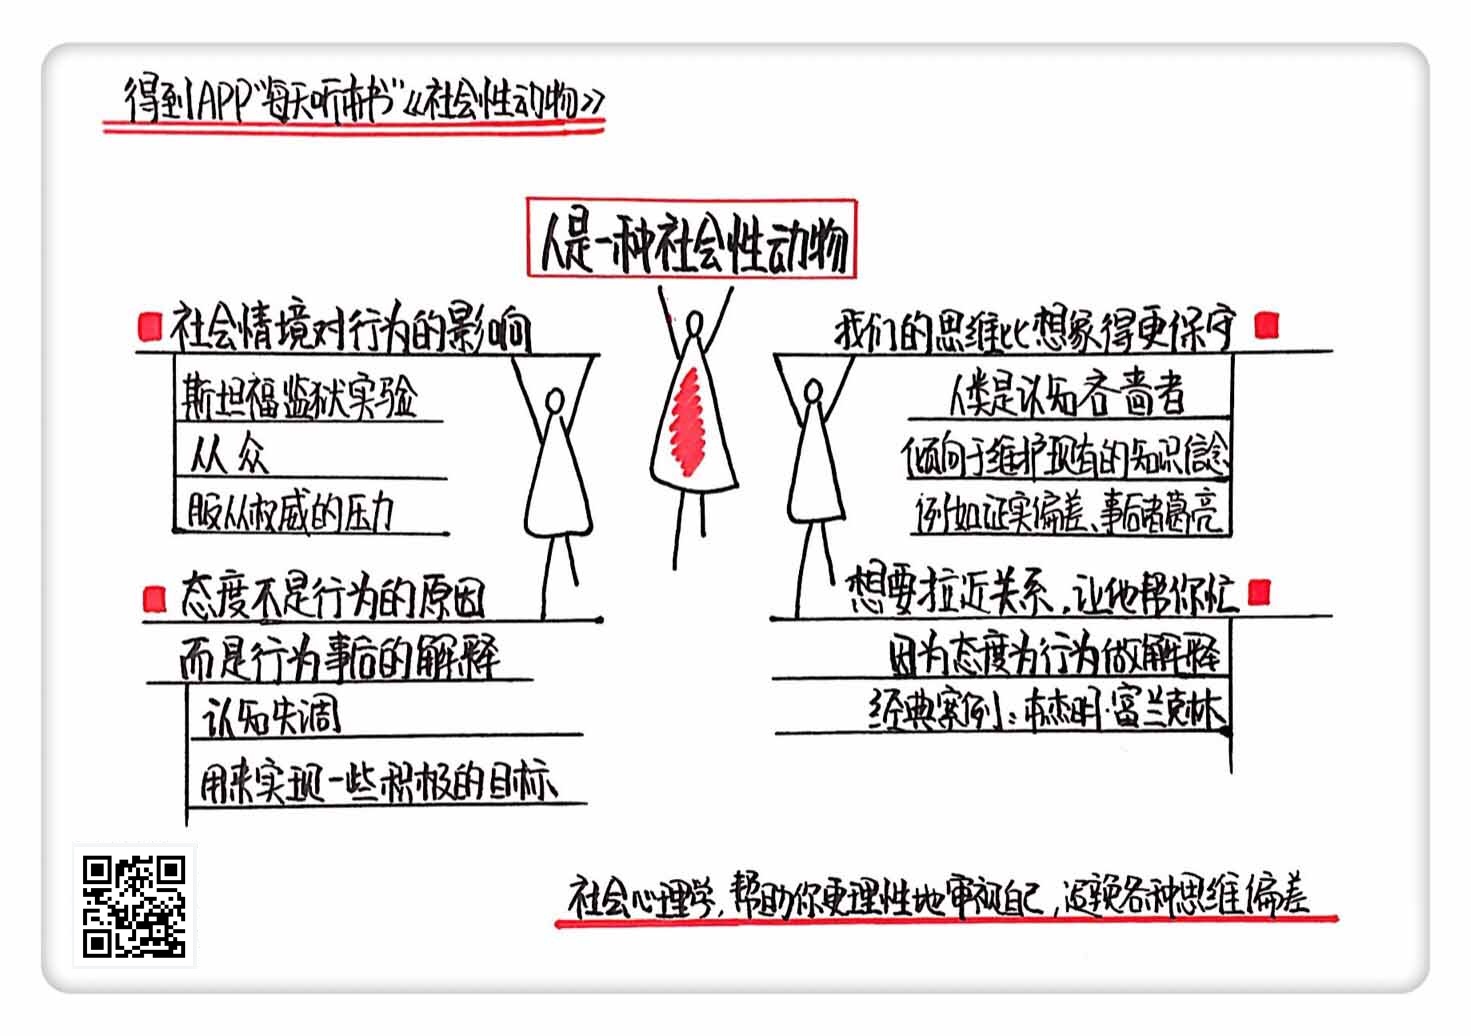 得到APP“每天听本书”《社会性动物》
人是一种社会性动物
社会情境对行为的影响
斯坦福监狱实验
从众
服从权威的压力
态度不是行为的原因
而是行为事后的解释
认知失调
用来实现一些积极的目标
我们的思维比想象得更保守
人类是认知吝啬者
倾向于维护现有的知识信念
例如证实偏差、事后诸葛亮
想要拉近关系,让他帮你忙
因为态度为行为做解释
经典案例:本杰明·富兰克林
社会心理学,帮助你更理性地审视自己,避免各种思维偏差